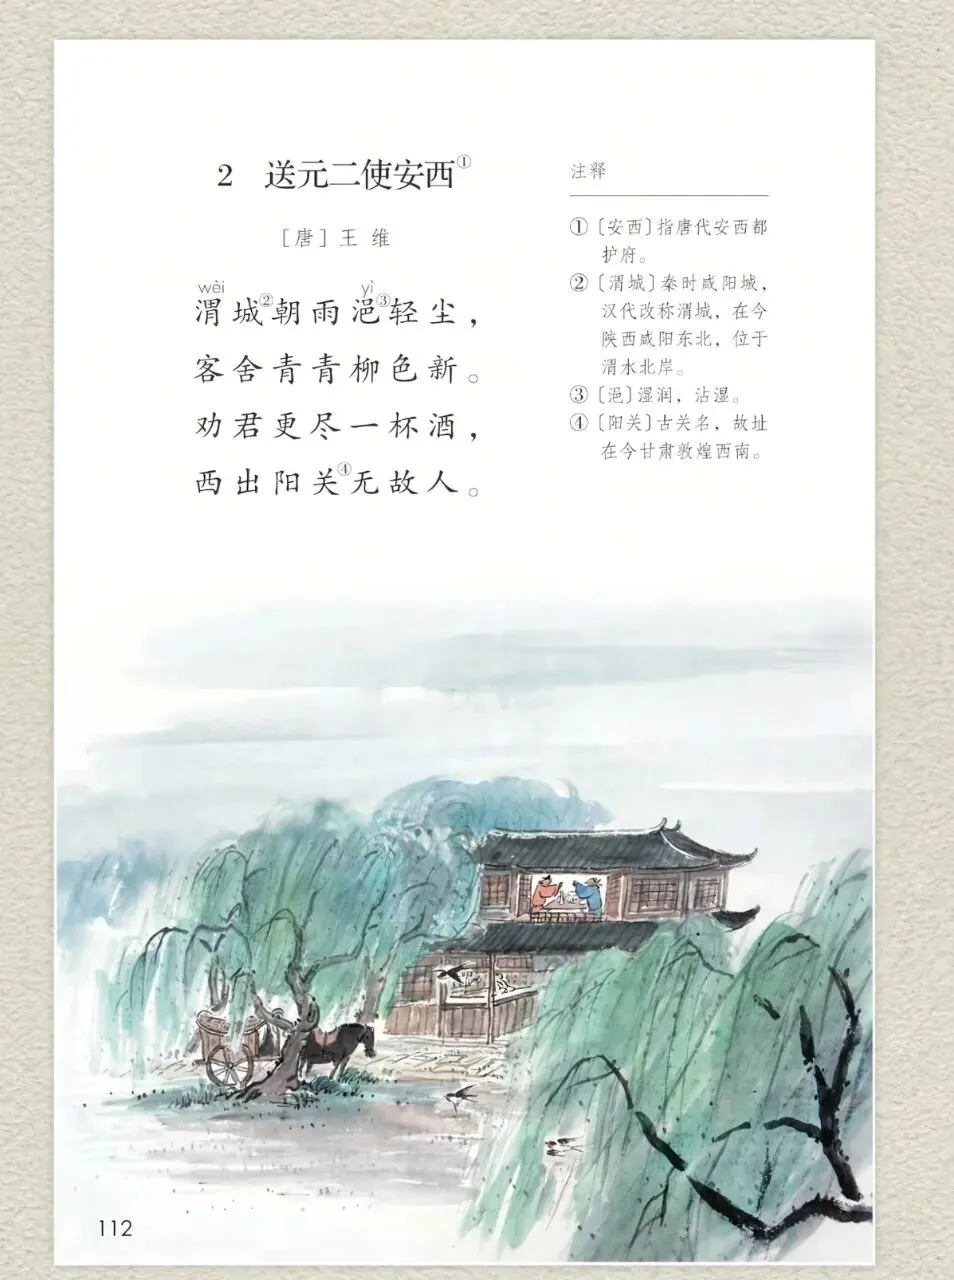 2 送元二使安西①
［唐］王 维
wèi yì
渭城②朝雨浥③轻尘，
客舍青青柳色新。
劝君更尽一杯酒，
西出阳关④无故人。
注释
①〔安西〕指唐代安西都
护府。
②〔渭城〕秦时咸阳城，
汉代改称渭城，在今
陕西咸阳东北，位于
渭水北岸。
③〔浥〕湿润，沾湿。
④〔阳关〕古关名，故址
在今甘肃敦煌西南。
112